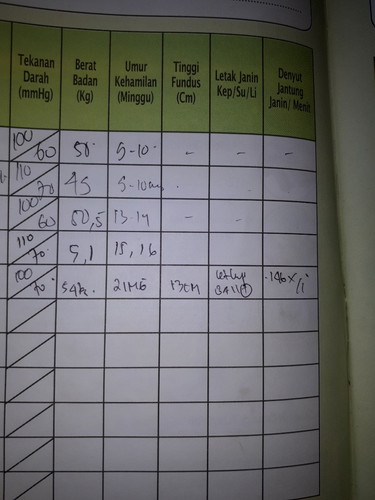 Tekanan Darah (mmHg) Berat Badan (Kg) Umur Kehamilan (Minggu) Tinggi Fundus (Cm) Letak Janin Kep/Su/Li Denyut Jantung Janin/ Menit
100/60 50. 9-10. - - -
110/70 45 9-10
100/60 50,5 13-14 - -
110/70. 5,1 15,16
100/70. 54k. 13cm 146x/1'